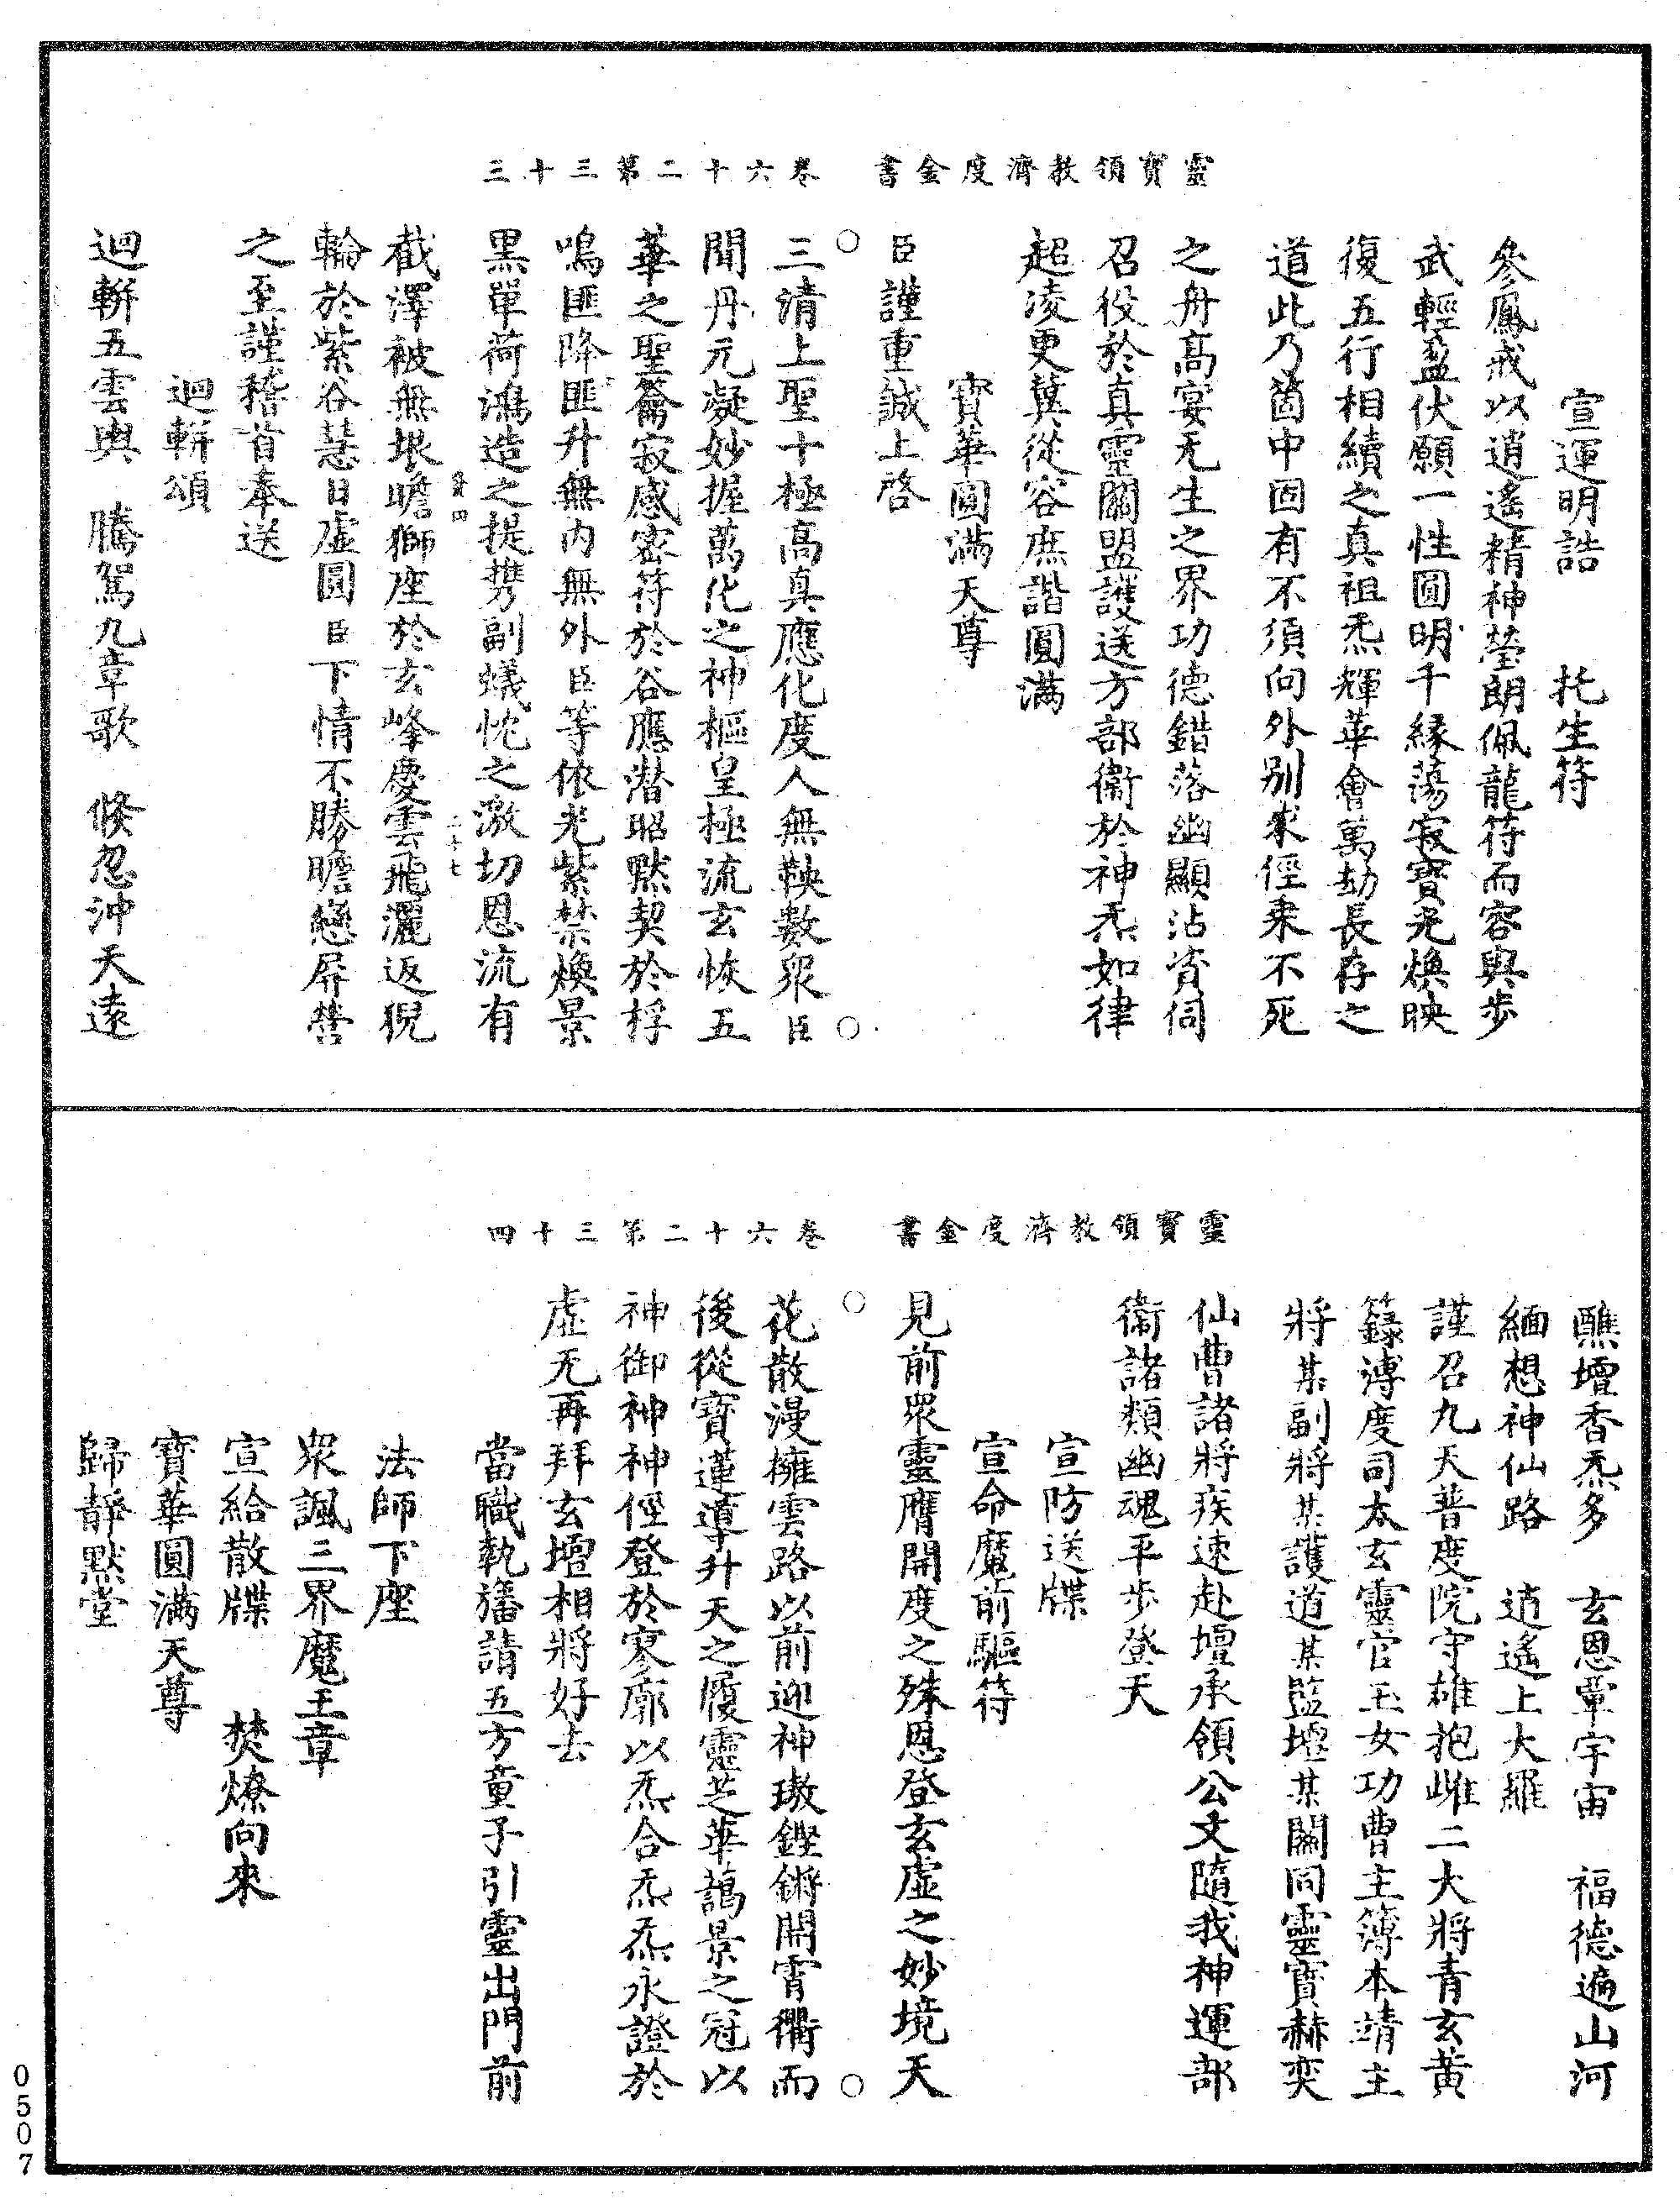 靈寶領教濟度金書　卷六十二第三十三
宣運明誥　托生符
參鳳戒以逍遙精神瑩朗佩龍符而容與步
武輕盈伏願一性圓明千緣蕩寂寶光煥映
復五行相續之真祖炁輝華會萬劫長存之
道此乃箇中固有不須向外別求徑乘不死
之舟高宴无生之界功德錯落幽顯沾資伺
召役於真靈關盟護送方部衛於神炁如律
超凌更蓂從容庶諧圓滿
寶華圓滿天尊
臣謹重誠上啓
三清上聖十極高真應化度人無鞅數眾臣
聞丹元凝妙握萬化之神樞皇極流玄恢五
華之聖籥寂感密符於谷應潛昭默契於桴
鳴匪降匪升無內無外臣等依光紫禁煥景
黑單荷鴻造之提携副蟻忱之激切恩流有
截澤被無垠瞻獅座於玄峰慶雲飛灑返猊
輪於紫谷慧日虛圓臣下情不勝瞻戀屏營
之至謹稽首奉送
迴軿頌
迴軿五雲輿　騰駕九章歌　倏忽沖天遠
二十七
靈寶領教濟度金書　卷六十二第三十四
醮壇香炁多　玄恩覃宇宙　福德遍山河
緬想神仙路　逍遙上大羅
謹召九天普度院守雄抱雌二大將青玄黃
籙溥度司太玄靈官玉女功曹主簿本靖主
將某副將某護道某監壇某關同靈寶赫奕
仙曹諸將疾速赴壇承領公文隨我神運部
衛諸類幽魂平步登天
宣防送牒
宣命魔前驅符
見前眾靈膺開度之殊恩登玄虛之妙境天
花散漫擁雲路以前迎神璈鏗鏘開霄衢而
後從寶蓮導升天之履靈芝華藹景之冠以
神御神神徑登於寥廓以炁合炁炁永證於
虛无再拜玄壇相將好去
當職執旛請五方童子引靈出門前
法師下座
眾諷三界魔王章
宣給散牒　焚燎向來
寶華圓滿天尊
歸靜默堂
0507